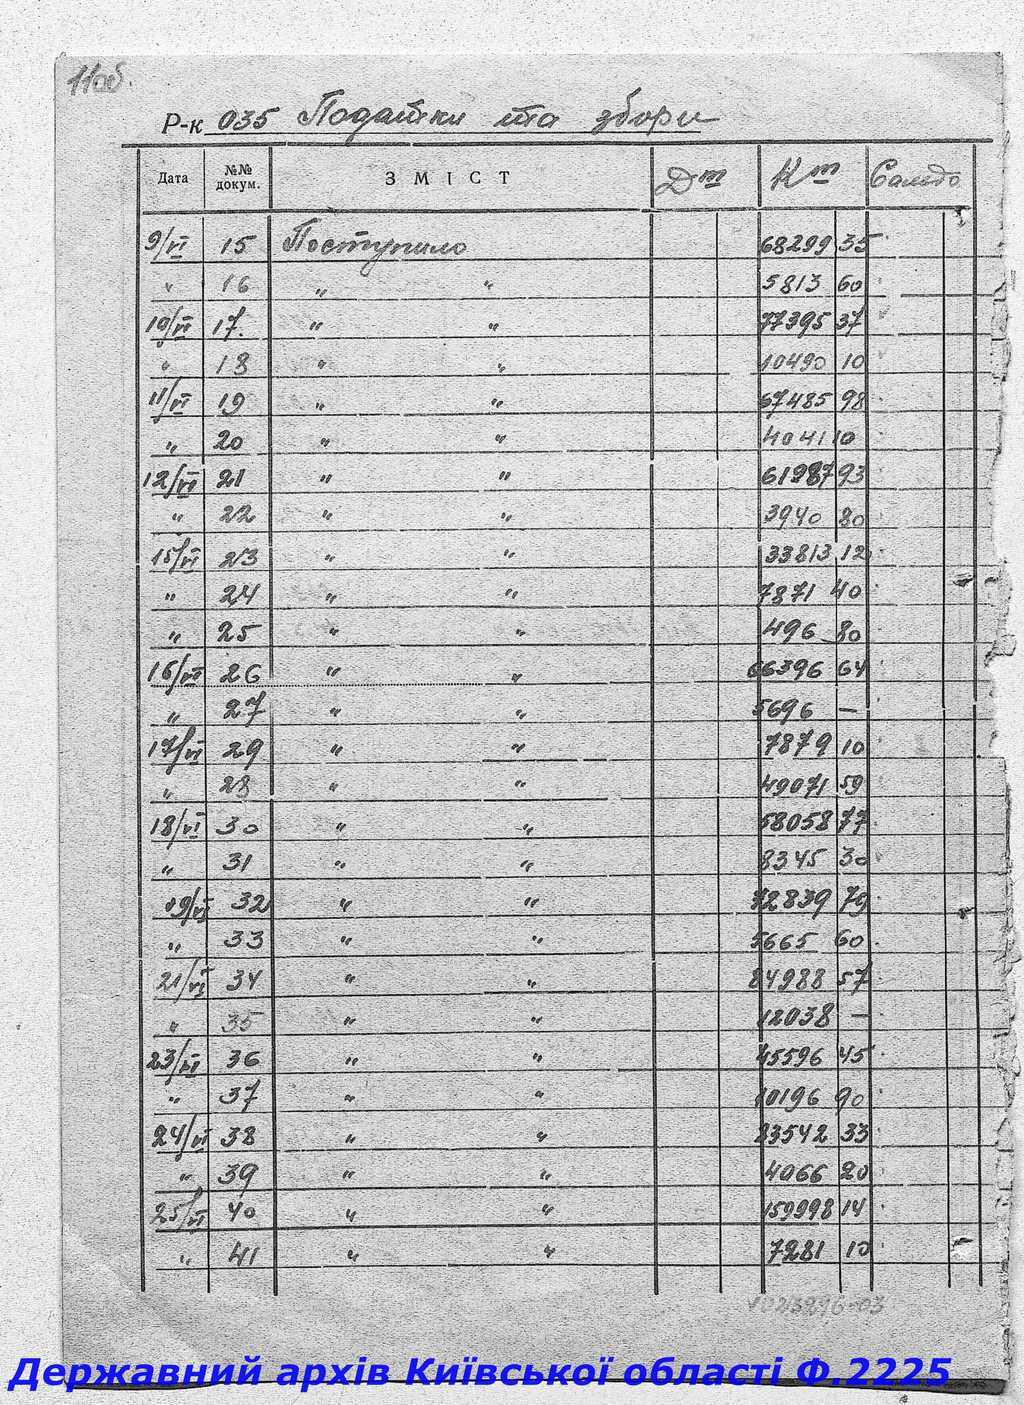 11об.
Р-к 035 Податки та збори
Дата №№ докум. ЗМІСТ Дт Кт Сальдо
9/VI 15 Поступило 68299 35
" 16 " " 5813 60
10/VI 17. " " 77395 37
" 18 " " 10490 10
11/VI 19 " " 67485 98
" 20 " " 4041 10
12/VI 21 " " 61987 93
" 22 " " 3940 80
15/VI 23 " " 33813 12
" 24 " " 7871 40
" 25 " " 496 80
16/VI 26 " " 66396 64
" 27 " " 5696 —
17/VI 29 " " 7879 10
" 28 " " 49071 59
18/VI 30 " " 58058 77
" 31 " " 8345 30
19/VI 32 " " 72839 79
" 33 " " 5665 60
21/VI 34 " " 84988 57
" 35 " " 12038 —
23/VI 36 " " 45596 45
" 37 " " 10196 90
24/VI 38 " " 83542 33
" 39 " " 4066 20
25/VI 40 " " 159998 14
" 41 " " 7281 10
Державний архів Київської області Ф.2225